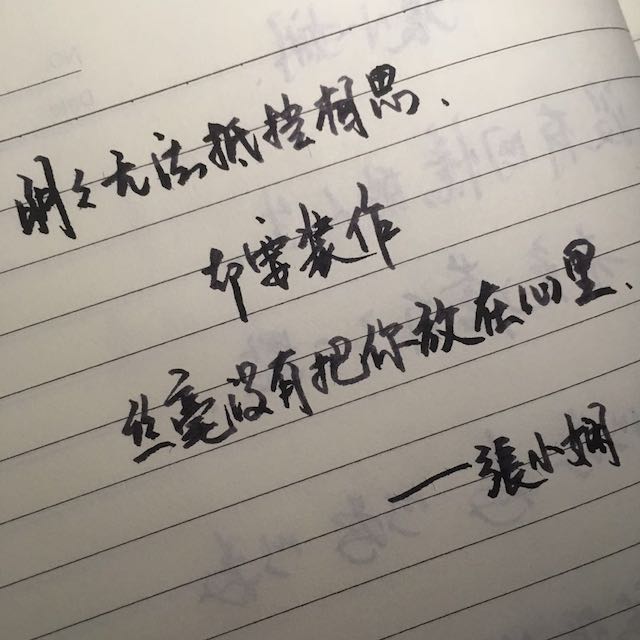 明々无法抵挡相思、
却要装作
丝毫没有把你放在心里、
—張小娴
NO.
Date